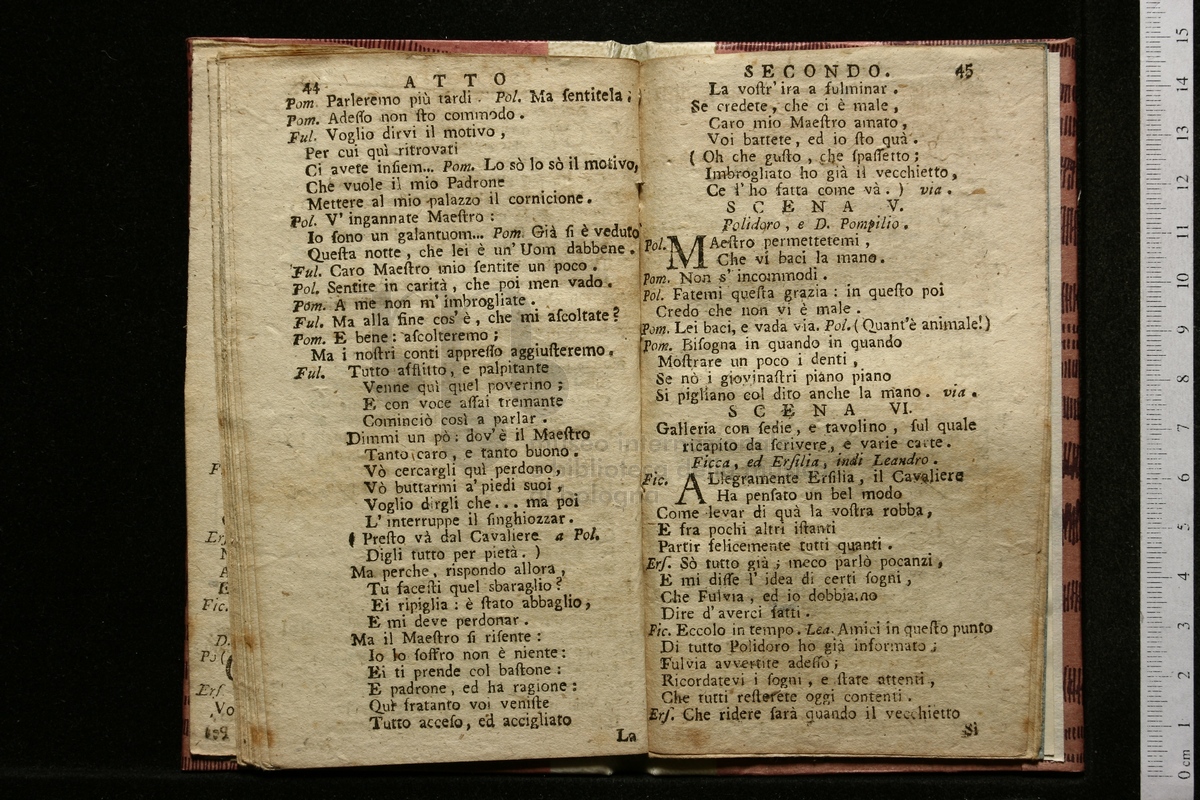 44 ATTO
Pom. Parleremo più tardi. Pol. Ma ſentitela;
Pom. Adeſſo non ſto commodo.
Ful. Voglio dirvi il motivo,
Per cui quì ritrovati
Ci avete inſiem... Pom. Lo sò lo sò il motivo,
Che vuole il mio Padrone
Mettere al mio palazzo il cornicione.
Pol. V' ingannate Maeſtro:
Io ſono un galantuom... Pom. Già ſi è veduto
Queſta notte, che lei è un' Uom dabbene.
Ful. Caro Maeſtro mio ſentite un poco.
Pol. Sentite in carità, che poi men vado.
Pom. A me non m' imbrogliate.
Ful. Ma alla fine cos' è, che mi aſcoltate?
Pom. E bene: aſcolteremo;
Ma i noſtri conti appreſſo aggiuſteremo.
Ful. Tutto afflitto, e palpitante
Venne quì quel poverino;
E con voce aſſai tremante
Cominciò così a parlar.
Dimmi un pò: dov' è il Maeſtro
Tanto caro, e tanto buono.
Vò cercargli quì perdono,
Vò buttarmi a' piedi ſuoi,
Voglio dirgli che... ma poi
L' interruppe il ſinghiozzar.
( Preſto và dal Cavaliere a Pol.
Digli tutto per pietà. )
Ma perche, riſpondo allora,
Tu faceſti quel sbaraglio?
Ei ripiglia: è ſtato abbaglio,
E mi deve perdonar.
Ma il Maeſtro ſi riſente:
Io lo ſoffro non è niente:
Ei ti prende col baſtone:
E padrone, ed ha ragione:
Quì fratanto voi veniſte
Tutto acceſo, ed accigliato
La
SECONDO. 45
La voſtr' ira a fulminar.
Se credete, che ci è male,
Caro mio Maeſtro amato,
Voi battete, ed io ſto quà.
( Oh che guſto, che ſpaſſetto;
Imbrogliato ho già il vecchietto,
Ce l' ho fatta come và. ) via.
SCENA V.
Polidoro, e D. Pompilio.
Pol. MAeſtro permettetemi,
Che vi baci la mano.
Pom. Non s' incommodi.
Pol. Fatemi queſta grazia: in queſto poi
Credo che non vi è male.
Pom. Lei baci, e vada via. Pol. (Quant' è animale!)
Pom. Biſogna in quando in quando
Moſtrare un poco i denti,
Se nò i giovinaſtri piano piano
Si pigliano col dito anche la mano. via.
SCENA VI.
Galleria con ſedie, e tavolino, ſul quale
ricapito da ſcrivere, e varie carte.
Ficca, ed Erſilia, indi Leandro.
Fic. ALlegramente Erſilia, il Cavaliere
Ha penſato un bel modo
Come levar di quà la voſtra robba,
E fra pochi altri iſtanti
Partir felicemente tutti quanti.
Erſ. Sò tutto già; meco parlò pocanzi,
E mi diſſe l' idea di certi ſogni,
Che Fulvia, ed io dobbiamo
Dire d' averci fatti.
Fic. Eccolo in tempo. Lea. Amici in queſto punto
Di tutto Polidoro ho già informato;
Fulvia avvertite adeſſo;
Ricordatevi i ſogni, e ſtate attenti,
Che tutti reſterete oggi contenti.
Erſ. Che ridere ſarà quando il vecchietto
Si